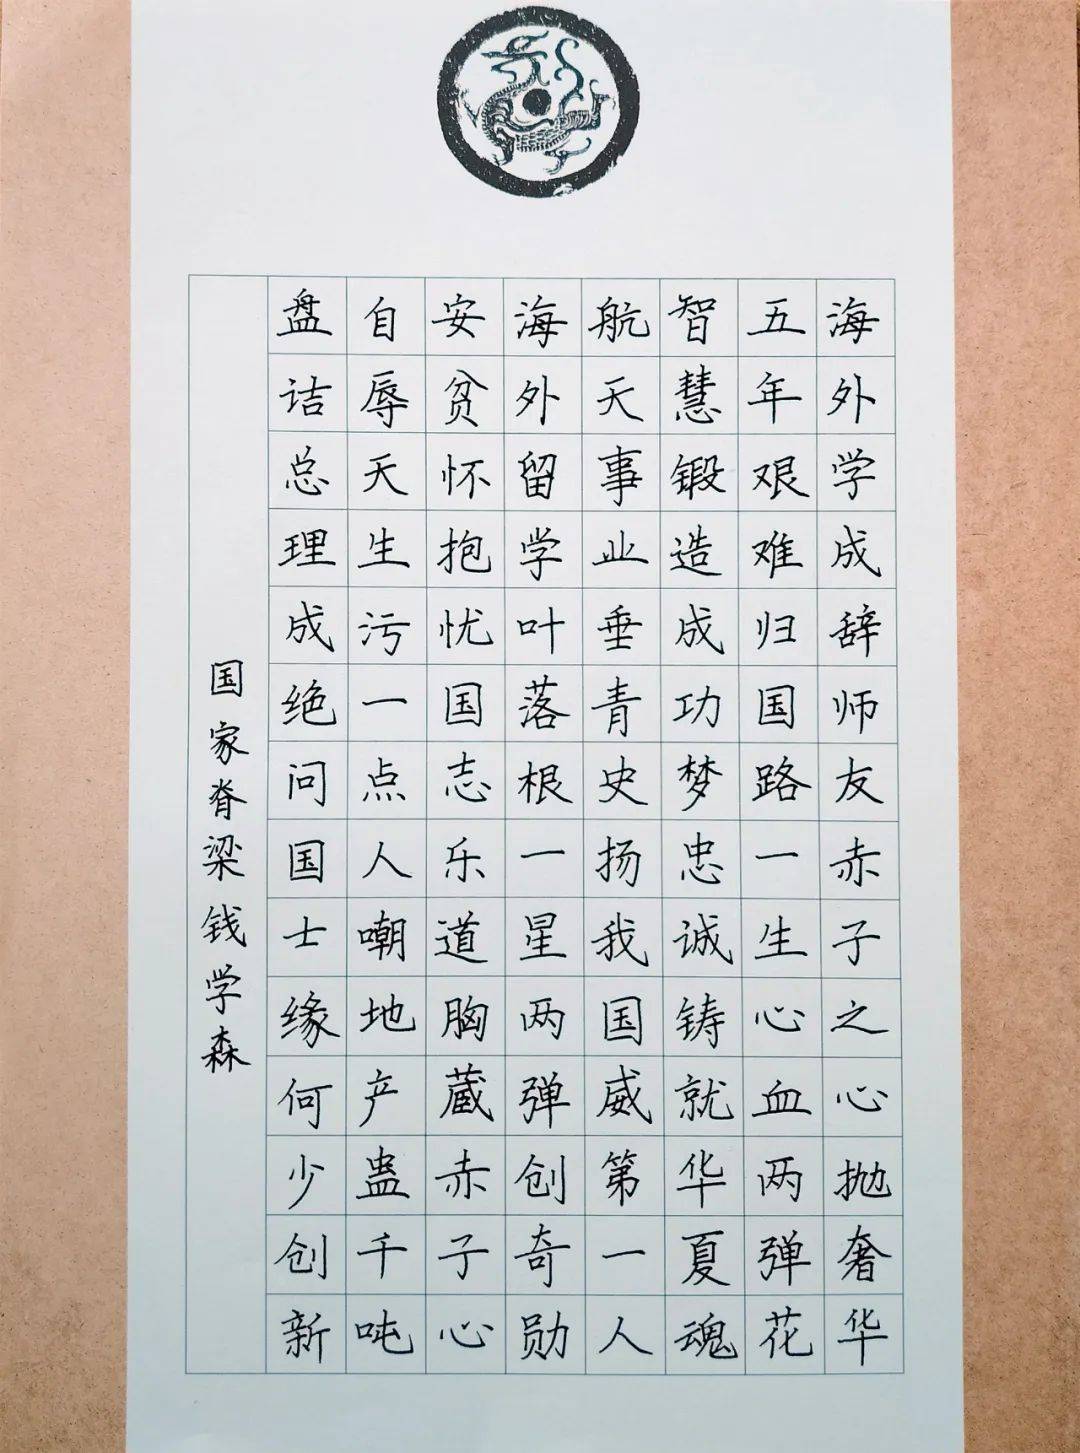 海外学成辞师友赤子之心抛奢华
五年艰难归国路一生心血两弹花
智慧锻造成功梦忠诚铸就华夏魂
航天事业垂青史扬我国威第一人
海外留学叶落根一星两弹创奇勋
安贫怀抱忧国志乐道胸蔵赤子心
自辱天生污一点人嘲地产蛊千吨
盘诘总理成绝问国士缘何少创新
国家脊梁钱学森